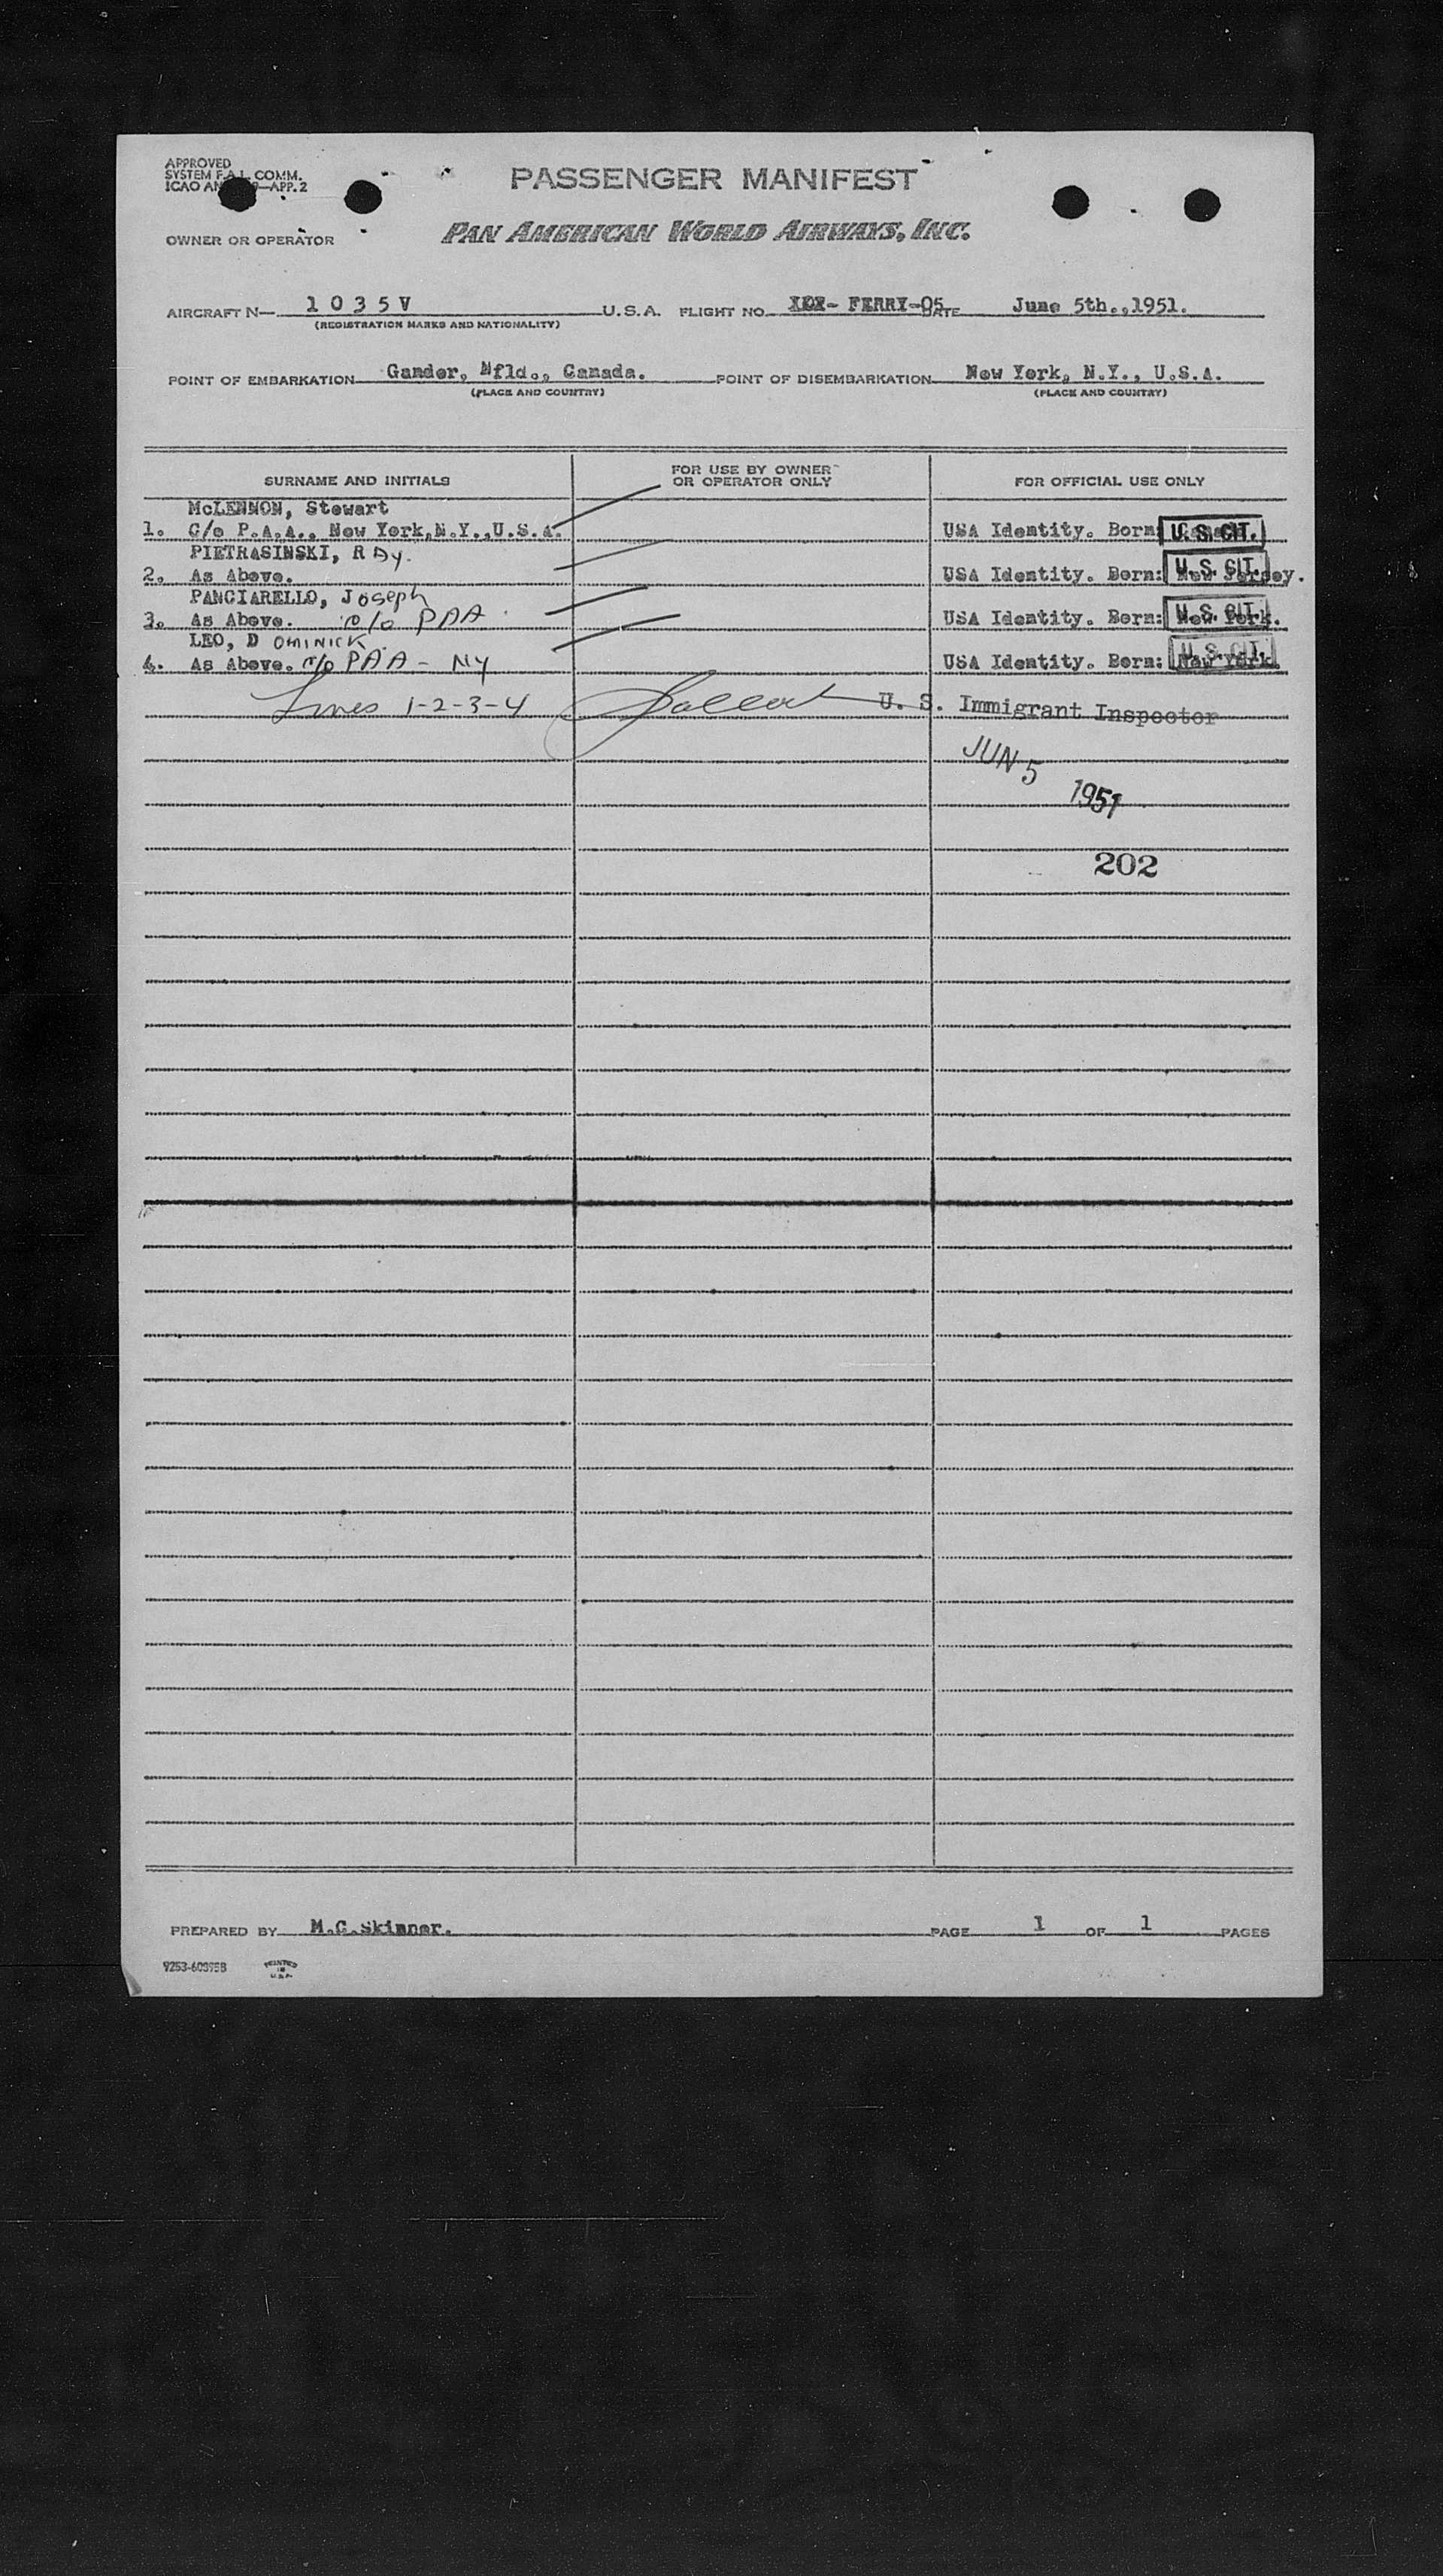 APPROVED
SYSTEM F.A.L. COMM.
ICAO AN —APP. 2
PASSENGER MANIFEST
OWNER OR OPERATOR
PAN AMERICAN WORLD AIRWAYS, INC.
AIRCRAFT N— 1 0 3 5 V U.S.A. FLIGHT NO. FERRY-05 DATE June 5th.,1951.
(REGISTRATION MARKS AND NATIONALITY)
POINT OF EMBARKATION Gander, Nfld., Canada. POINT OF DISEMBARKATION New York, N.Y., U.S.A.
(PLACE AND COUNTRY) (PLACE AND COUNTRY)
SURNAME AND INITIALS
FOR USE BY OWNER
OR OPERATOR ONLY
FOR OFFICIAL USE ONLY
McLENNON, Stewart
1. C/o P.A.A., New York,N.Y.,U.S.A. USA Identity. Born: U.S. CIT.
PIETRASINSKI, R Ay.
2. As Above. USA Identity. Born: New Jersey. U.S. CIT.
PANCIARELLO, Joseph
3. As Above. c/o PAA USA Identity. Born: New York. U.S. CIT.
LEO, D OMINICK
4. As Above. c/o PAA - NY USA Identity. Born: New York. U.S. CIT.
Lines 1-2-3-4 U. S. Immigrant Inspector
JUN 5 1951
202
PREPARED BY M.C.Skinner. PAGE 1 OF 1 PAGES
9253-60395B PRINTED
IN
U.S.A.